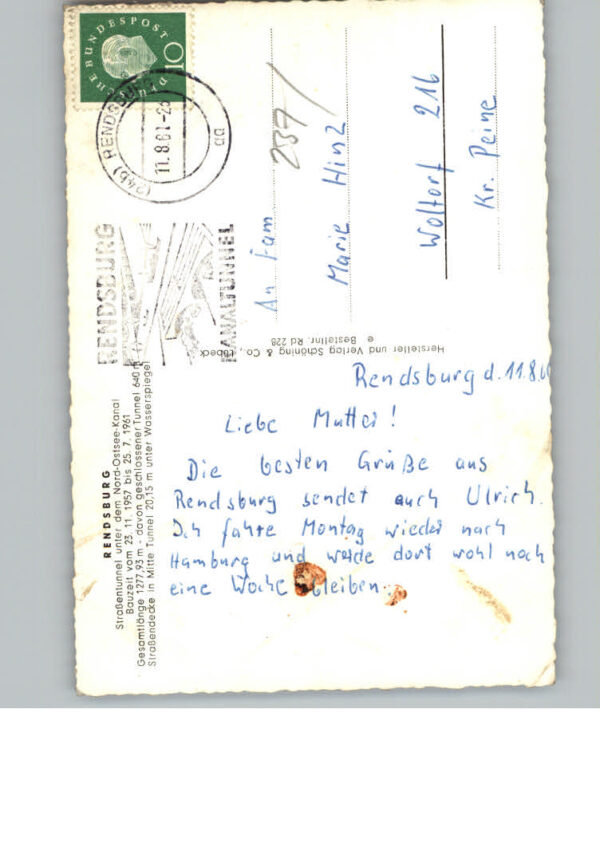 DEUTSCHE BUNDESPOST
10
(24b) RENDSBURG
11.8.61
RENDSBURG
KANALTUNNEL
An Fam
Marie Hinz
Woltorf 216
Kr. Peine
Hersteller und Verlag Schöning & Co., Lübeck
Bestellnr. Rd 228
RENDSBURG
Straßentunnel unter dem Nord-Ostsee-Kanal
Bauzeit vom 23. 11. 1957 bis 25. 7. 1961
Gesamtlänge 1277,93 m - davon geschlossener Tunnel 640 m
Straßendecke in Mitte Tunnel 20,15 m unter Wasserspiegel
Rendsburg d. 11.8.61
Liebe Mutter!
Die besten Grüße aus
Rendsburg sendet auch Ulrich.
Ich fahre Montag wieder nach
Hamburg und werde dort wohl noch
eine Woche bleiben.